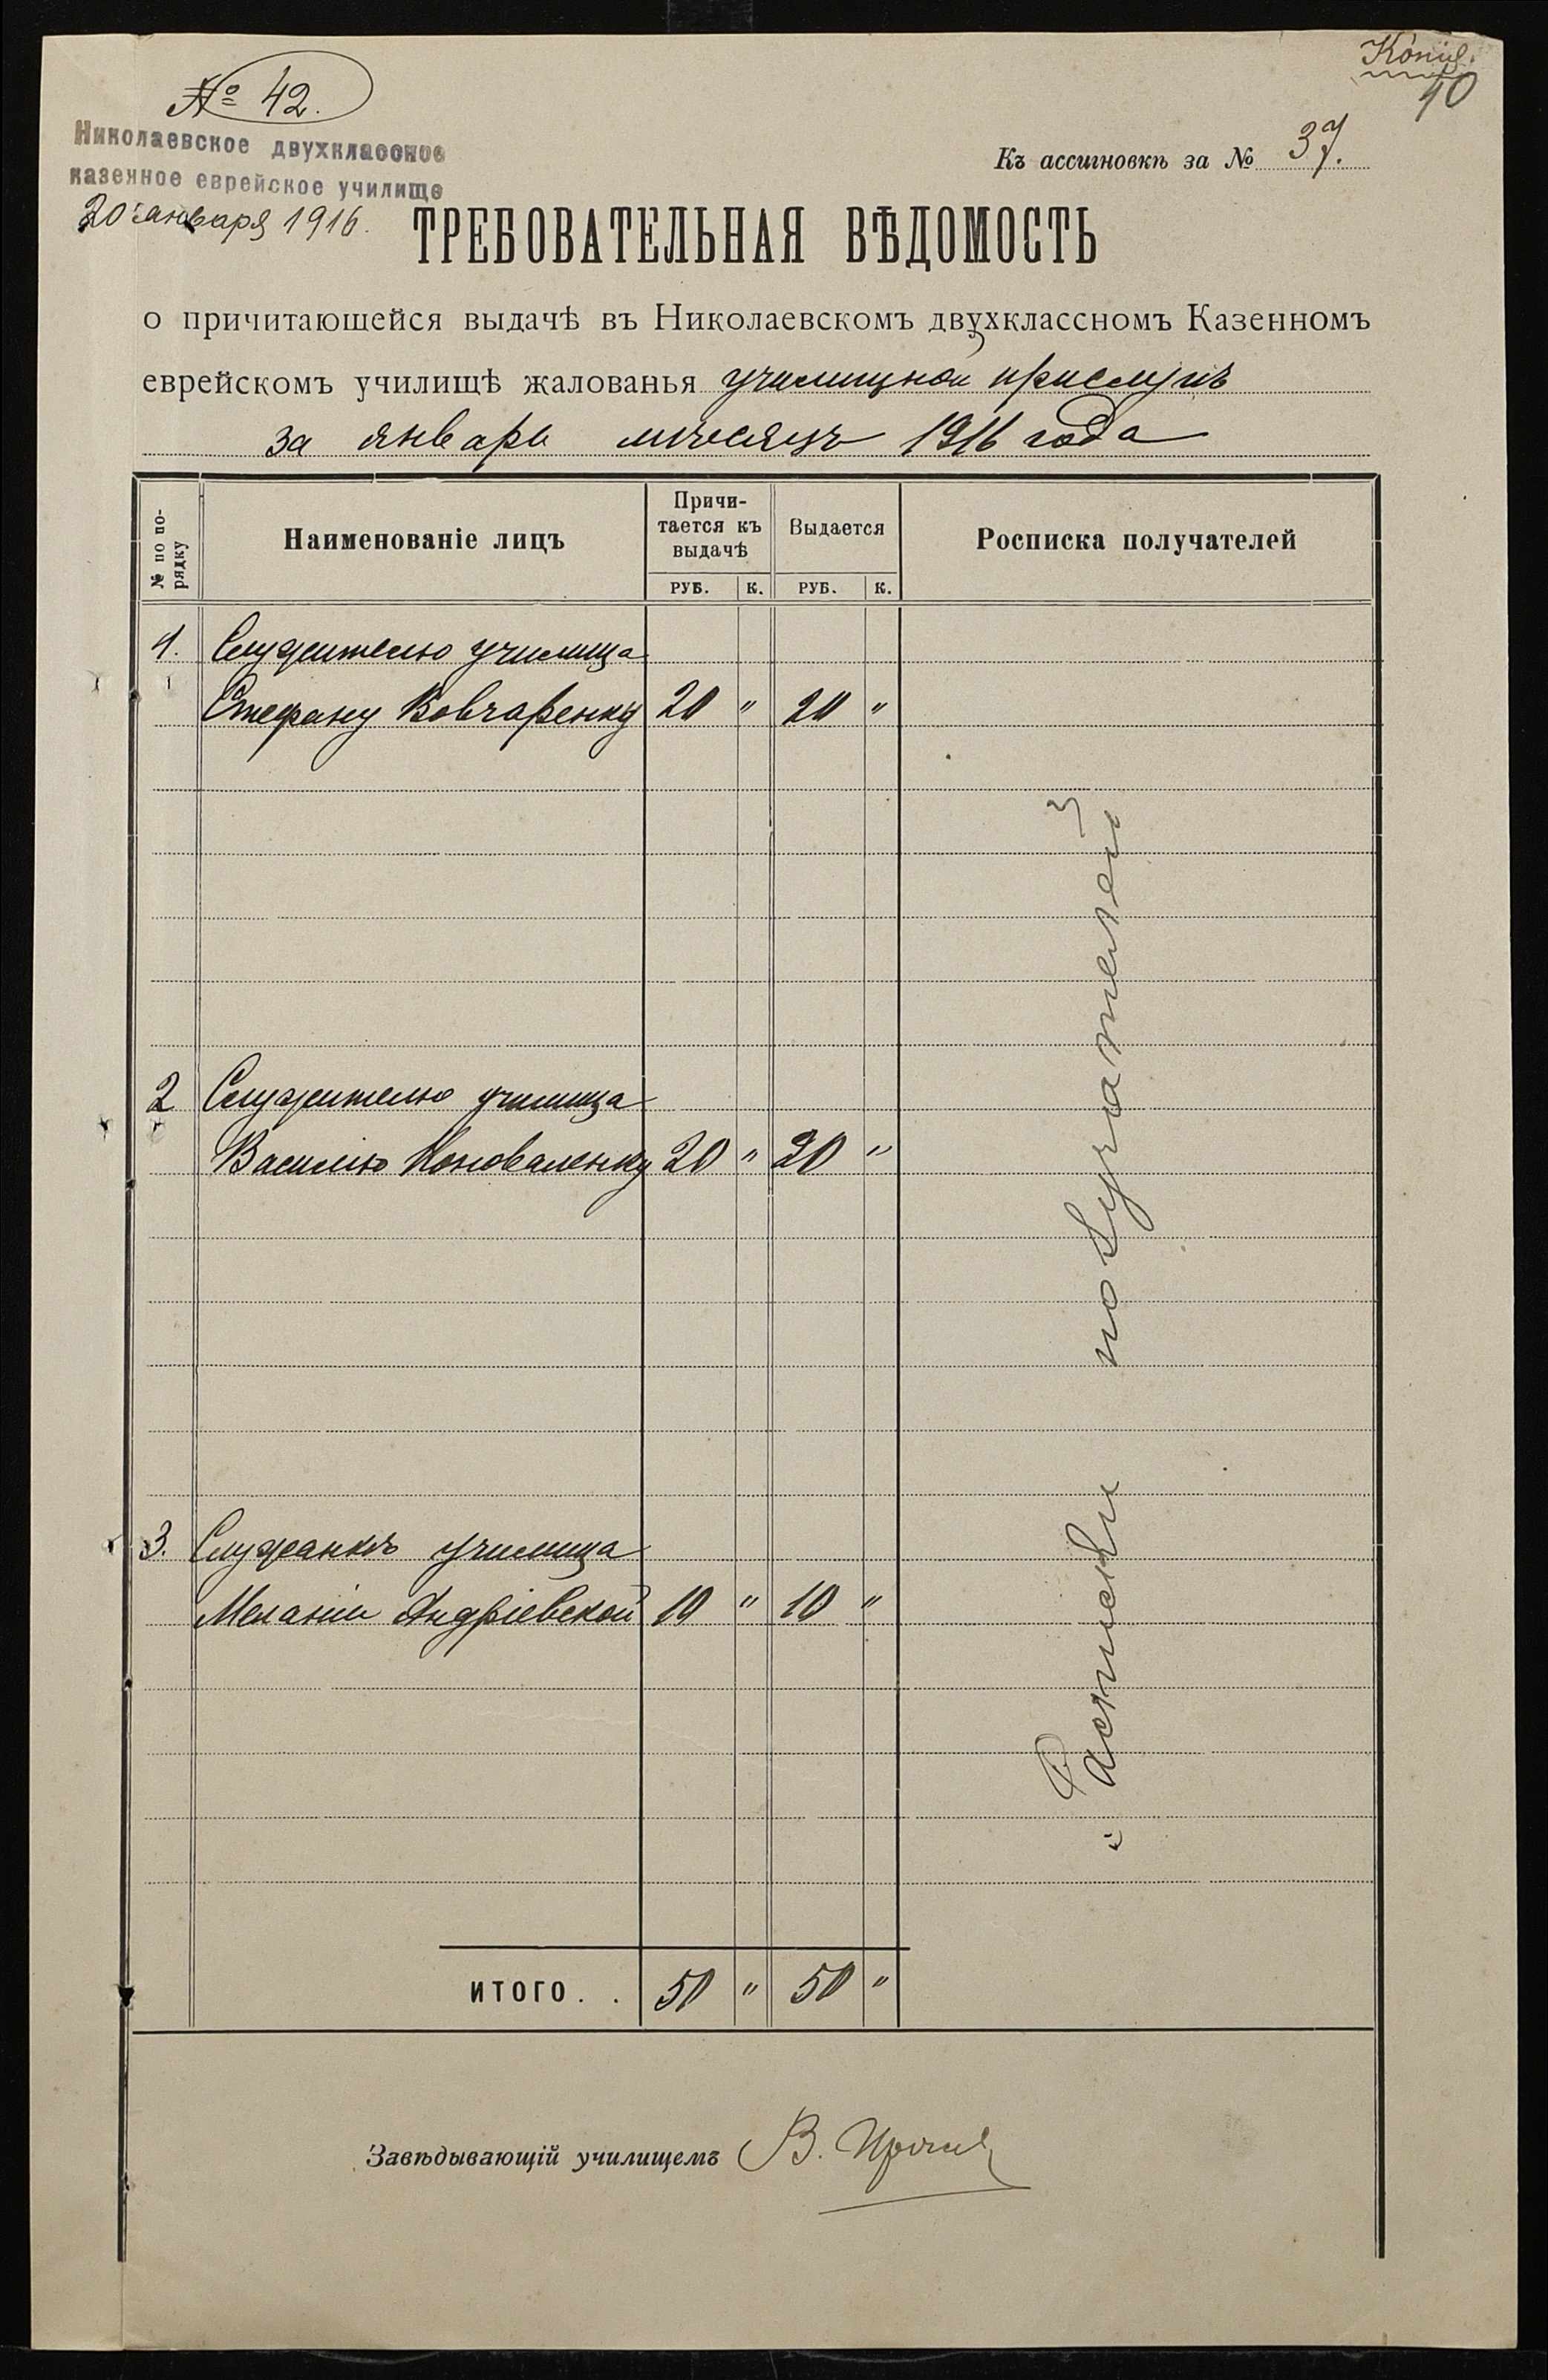 Копія.
40
№ 42.
Николаевское двухклассное
казенное еврейское училище
20 января 1916.
Къ ассигновкѣ за № 37.
ТРЕБОВАТЕЛЬНАЯ ВѢДОМОСТЬ
о причитающейся выдачѣ въ Николаевскомъ двухклассномъ Казенномъ
еврейскомъ училищѣ жалованья училищной прислугѣ
за январь мѣсяцъ 1916 года
№ по по-
рядку
Наименованіе лицъ
Причи-
тается къ
выдачѣ
Выдается
Росписка получателей
РУБ. К. РУБ. К.
1. Служителю училища
Стефану Вовчаренку 20 " 20 "
2 Служителю училища
Василію Коноваленку 20 " 20 "
3. Служанкѣ училища
Меланіи Андріевской 10 " 10 "
Расписки получателей
ИТОГО. . 50 " 50 "
Завѣдывающій училищемъ В.